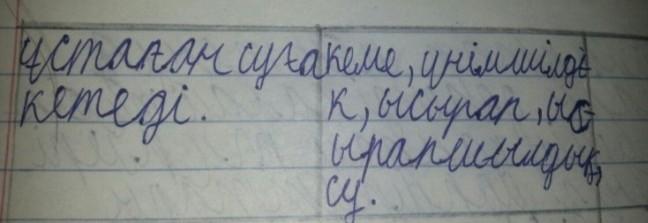 ұстаған суға
кетеді.
кеме, үнімшілді
к, ысырап, ыс
ырапшылдық,
су.